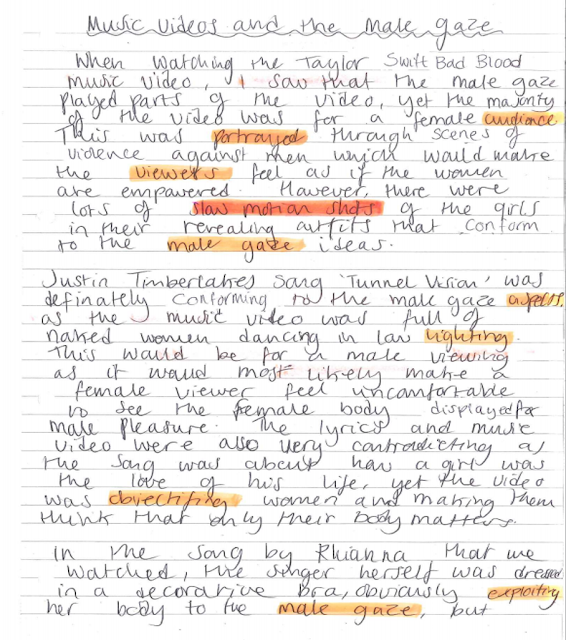 Music videos and the male gaze
When watching the Taylor Swift Bad Blood
music video, I saw that the male gaze
played parts of the video, yet the majority
of the video was for a female audience.
This was portrayed through scenes of
violence against men which would make
the viewers feel as if the women
are empowered. However, there were
lots of slow motion shots of the girls
in their revealing outfits that conform
to the male gaze ideas.
Justin Timberlakes song 'Tunnel Vision' was
definately conforming to the male gaze aspects,
as the music video was full of
naked women dancing in low lighting.
This would be for a male viewing
as it would most likely make a
female viewer feel uncomfortable
to see the female body displayed for
male pleasure. The lyrics and music
video were also very contradicting as
the song was about how a girl was
the love of his life, yet the video
was obvectifing women and making them
think that only their body matters.
In the song by Rhianna that we
watched, the singer herself was dressed
in a decorative bra, obviously exploiting
her body to the male gaze, but